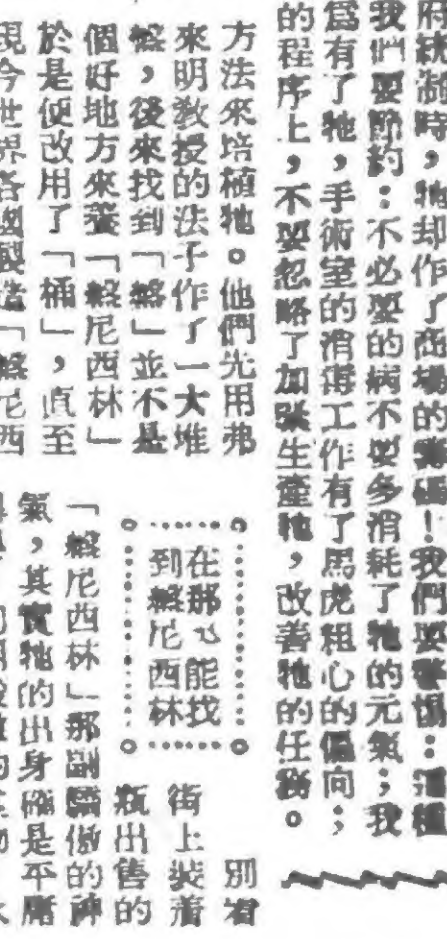 府統制時，牠却作了商場的寶礦！我們要警惕：這樣
我們要節約：不必要的病不要多消耗了牠的元氣；我
爲有了牠，手術室的消毒工作有了馬虎粗心的偏向；
的程序上，不要忽略了加緊生產牠，改善牠的任務。
方法來培植牠。他們先用弗
來明教授的法子作了一大堆
盤，後來找到「盤」並不是
個好地方來養「盤尼西林」
於是便改用了「桶」，直至
現今世界各國製造「盤尼西
在那裏能找
到盤尼西林
別看
街上裝着
瓶出售的
「盤尼西林」那副驕傲的神
氣，其實牠的出身確是平庸